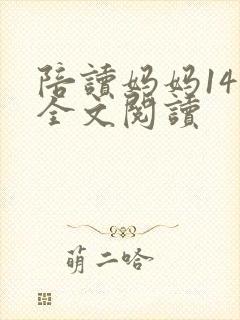 陪讀媽媽14
全文閱讀
萌二哈